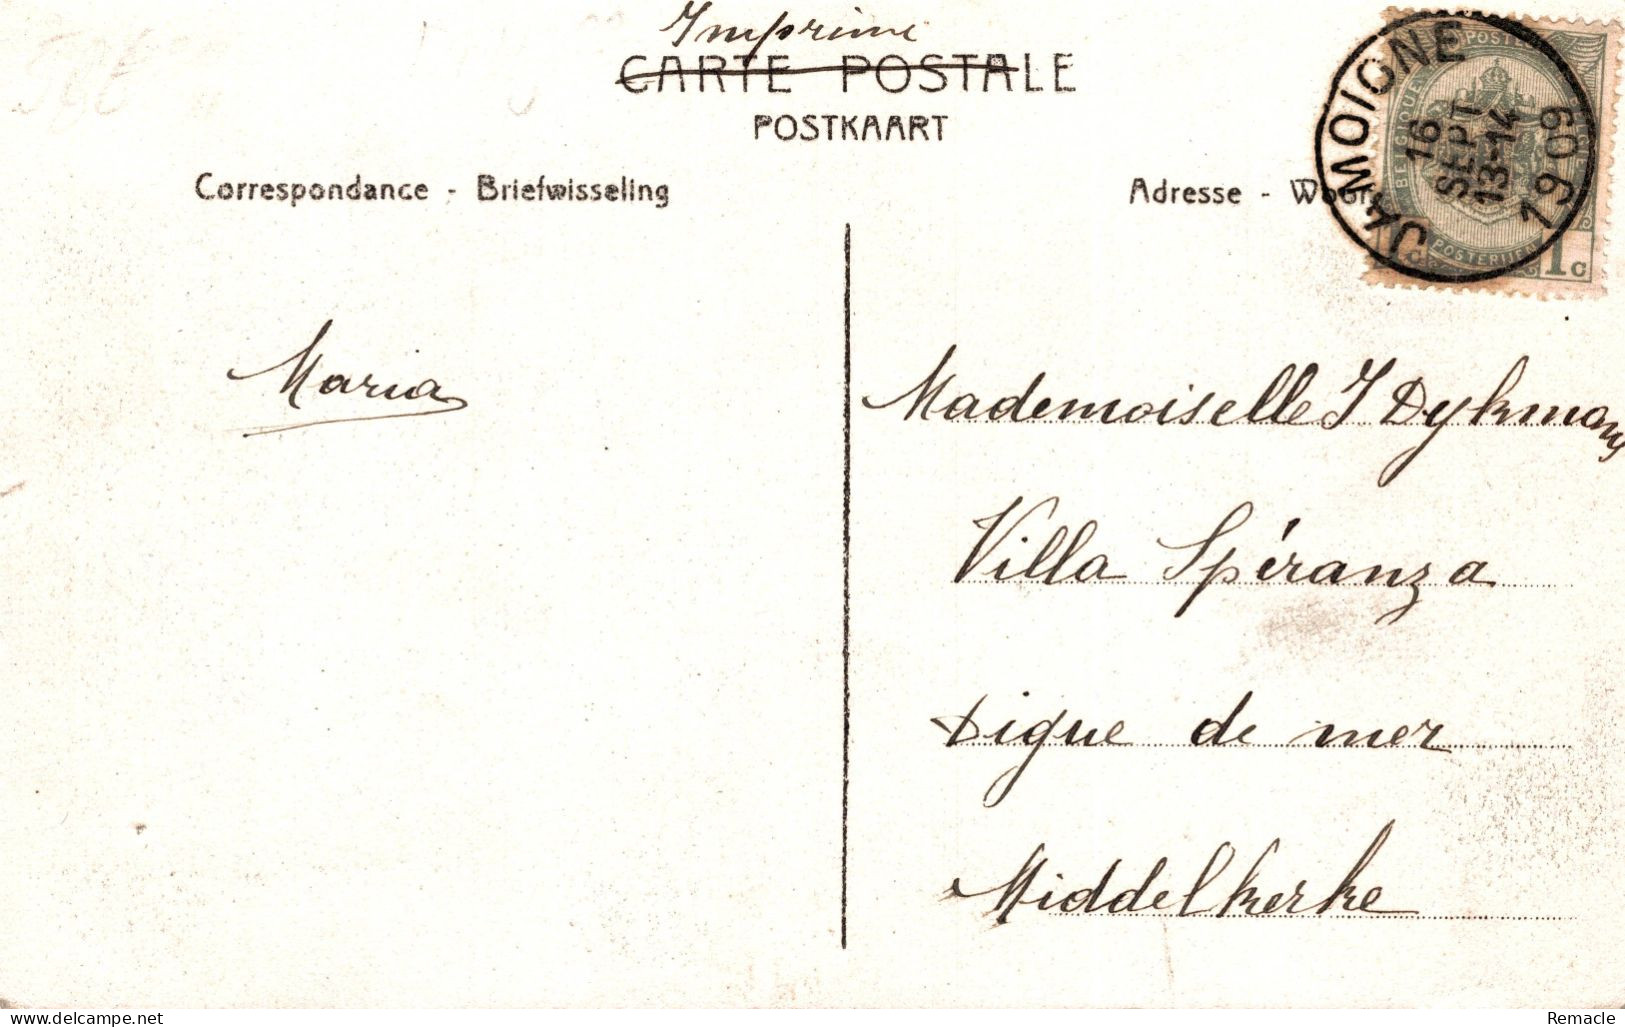 Imprimé
CARTE POSTALE
POSTKAART
Correspondance - Briefwisseling
Adresse - Woon
JAMOIGNE
16
SEPT
13-14
1909
POSTES
BELGIQUE
POSTERIJEN
1c
1c
Maria
Mademoiselle J Dykmans
Villa Spéranza
Digue de mer
Middelkerke
www.delcampe.net
Remacle